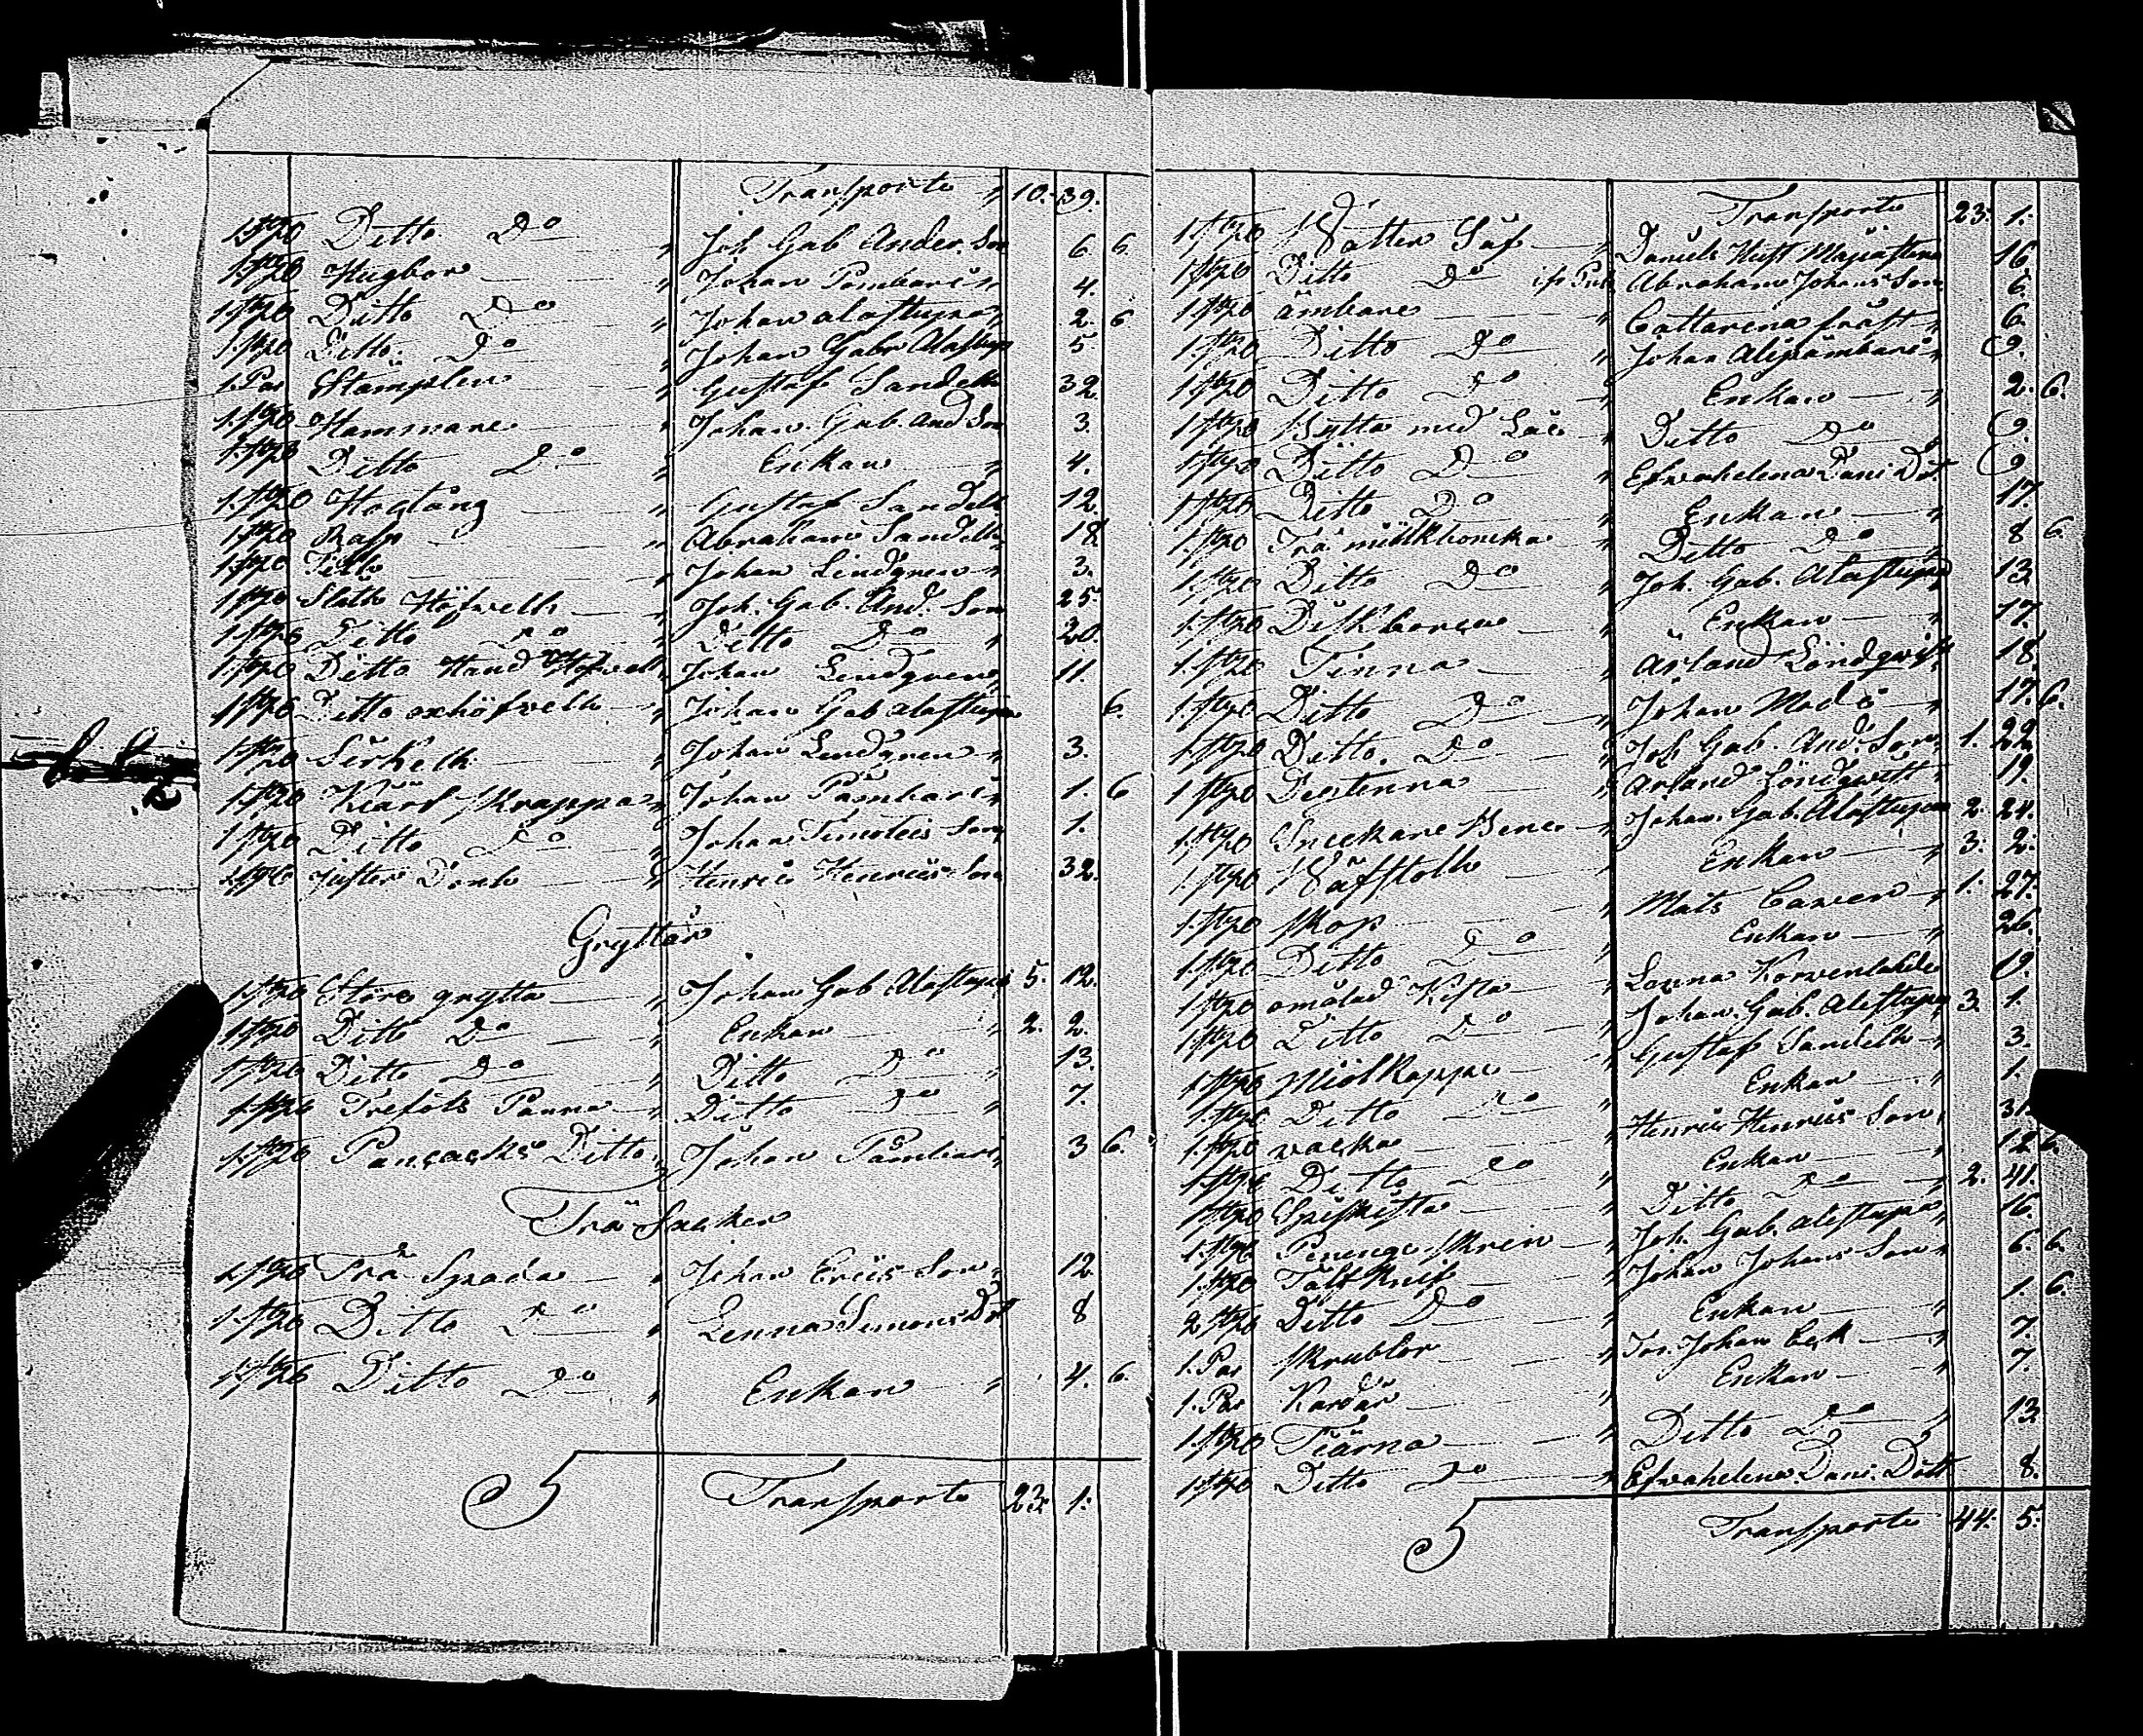 Transporto " 10. 39.
1 st:o Ditto Do " Joh Gab Ander Son 6. 6.
1 st:o Hugbor " Johan Pämbari " 4.
1 st:o Ditto Do " Johan alastupa 2. 6
1 st:o Ditto Do " Johan Gabr Alastupa 5
1. Par Stämplar " Gustaf Sandell 32
1 st:o Hammare " Johan. Gab. And Son 3.
1 st:o Ditto Do " Enkan " 4.
1 st:o Hogtång " Gustaf Sandell 12.
1 st:o Rasp " Abraham Sandell 18
1 st:o " Johan Lindgren " 3.
1 st:o Slätt Höfvell " Joh. Gab. And. Son 25.
1 st:o Ditto Do " Ditto Do " 20.
1 st:o Ditto Hand Höfvell Johan Lindgren 11.
1 st:o Ditto oxhöfvell " Johan Gab Alastupa 6.
1 st:o " Johan Lindgren " 3.
1 st:o Kiärl skrappa " Johan Pämbari " 1. 6
1 st:o Ditto Do " Johan Timoteis Son 1.
1 st:o " Henric Henrics Son 32.
Gryttor
1 st:o Störe grytta " Johan Gab Alastupa 5. 12.
1 st:o Ditto Do " Enkan " 2. 2.
1 st:o Ditto Do " Ditto Do 13.
1 st:o Trefots Panna " Ditto Do " 7.
1 st:o Pancacks Ditto " Johan Pämbari 3 6.
Trä Sacker
1 st:o Trä Spada " Johan Erics Son " 12
1 st:o Ditto Do " Lenna Simons Dot 8
1 st:o Ditto Do " Enkan " 4. 6.
Transporto 23. 1.
Transporto 23. 1.
1 st:o Watten Såf " Daniels Hust Majastina 16
1 st:o Ditto Do Abraham Johans Son 6
1 st:o ämbare " Cattarena fräst " 6.
1 st:o Ditto Do " Johan Alipämbari " 9.
1 st:o Ditto Do " Enkan " 2. 6.
1 st:o Bytta med Låc " Ditto Do 9.
1 st:o Ditto Do " Efvahelena Dani Dot 9
1 st:o Ditto Do " Enkan " 17.
1 st:o Trä miölkboncka " Ditto Do 8 6.
1 st:o Ditto Do " Joh. Gab. Alastupa 13
1 st:o Diskboncka " Enkan " 17.
1 st:o Tinna " Arland Löndqvist 18.
1 st:o Ditto Do " Johan Madë " 17. 6.
1 st:o Ditto. Do " Joh Gab. And. Son 1. 22
1 st:o Degtenna " Arland Löndqvist 19.
1 st:o Sneckare Benc " Johan. Gab. Alastupa 2. 24.
1 st:o Wäfstoll " Enkan " 3. 2.
1 st:o skop " Mats Caven " 1. 27.
1 st:o Ditto Do " Enkan " 26.
1 st:o omålad Kista " Lonna Korvenlahde 9.
1 st:o Ditto Do " Johan. Gab. Alastupa 3. 1.
1 st:o Miöl Kappe " Gustaf Sandell " 3.
1 st:o Ditto Do " Enkan " 1.
1 st:o vacka " Henric Henrics Son 31
1 st:o Ditto Do " Enkan " 12 6.
1 st:o Spiskista " Ditto Do " 2. 41.
1 st:o Penenge skrin " Joh. Gab. Alastupa 16.
1 st:o Tälj knif " Johan Johans Son " 6. 6.
2 st:o Ditto Do " Enkan " 1. 6.
1. Par skrublor " Johan Eek " 7.
1. Par Kardår " Enkan " 7.
1 st:o Tiärna " Ditto Do " 13
1 st:o Ditto Do " Efvahelena Dani. Dott 8.
Transporto 44. 5.